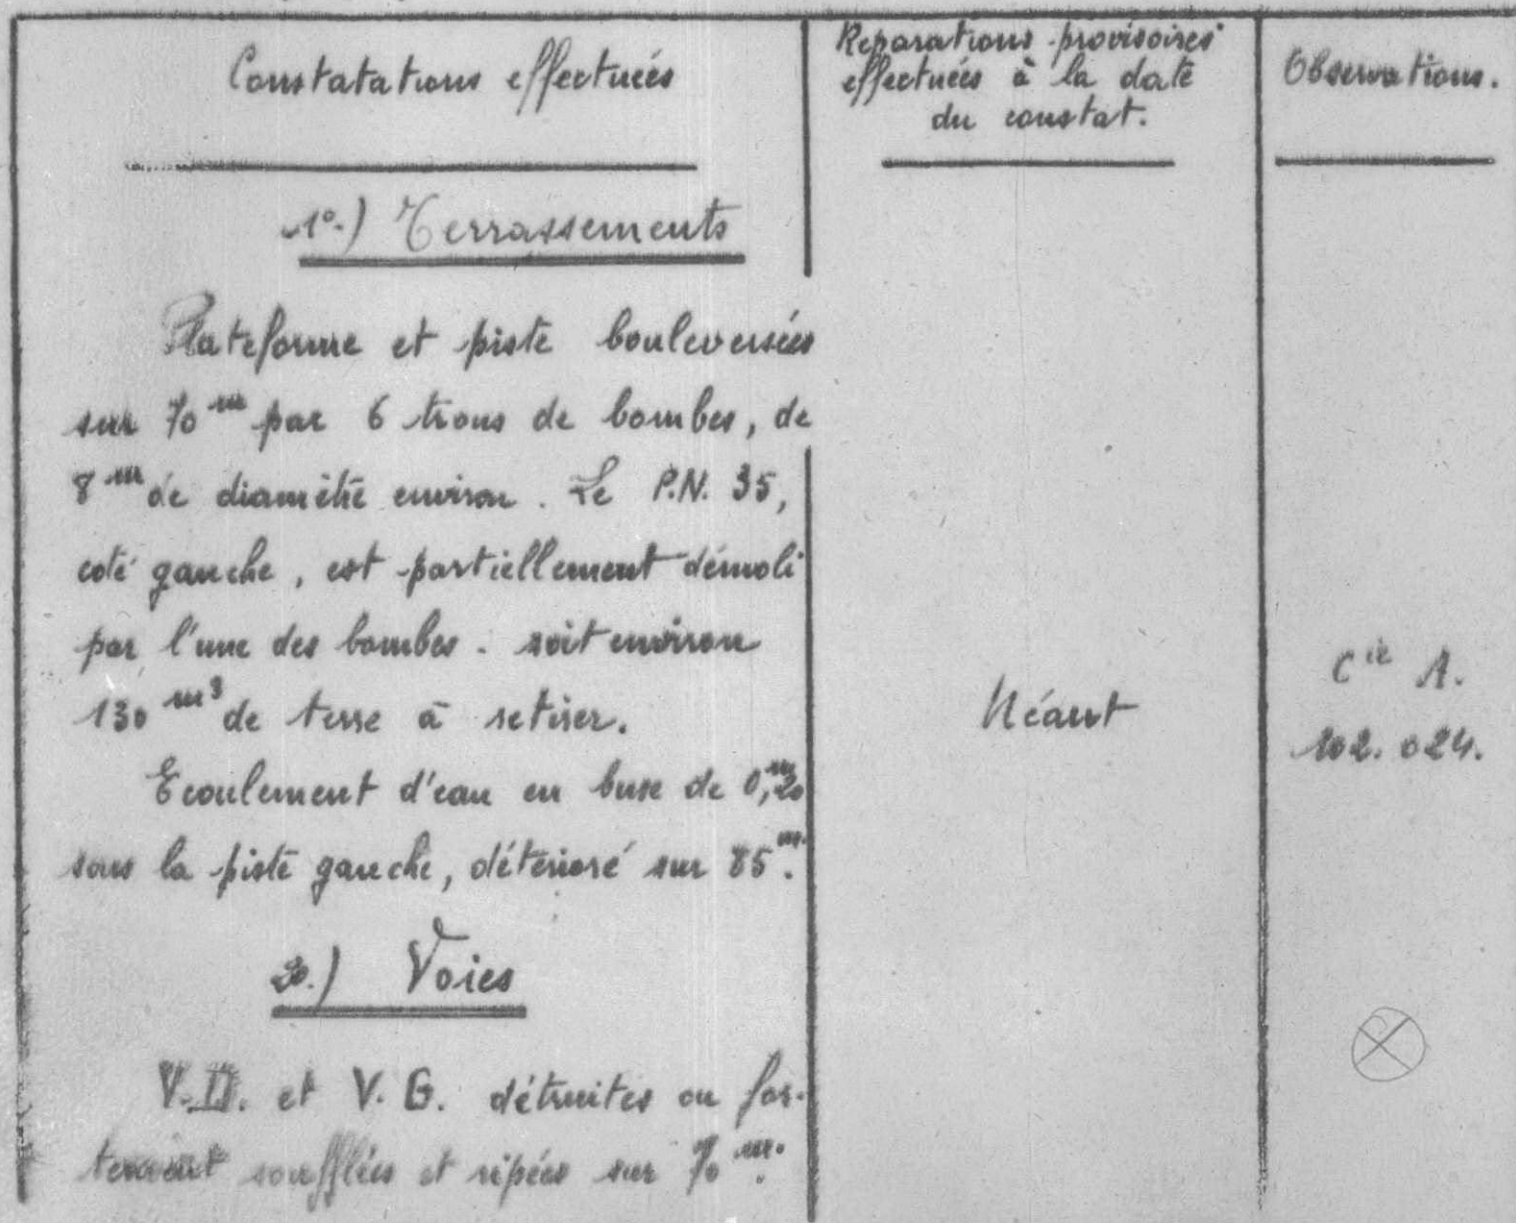 Constatations effectuées
Réparations provisoires
effectuées à la date
du constat.
Observations.
1º.) Terrassements
Plateforme et piste bouleversées
sur 70 m par 6 trous de bombes, de
8 m de diamètre environ. Le P.N. 35,
coté gauche, est partiellement démoli
par l'une des bombes. soit environ
130 m3 de terre à retirer.
Ecoulement d'eau en buse de 0,m20
sous la piste gauche, détérioré sur 85 m.
Néant
Cie A.
102.024.
2º.) Voies
V.D. et V.G. détruites ou for-
tement soufflées et ripées sur 70 m.